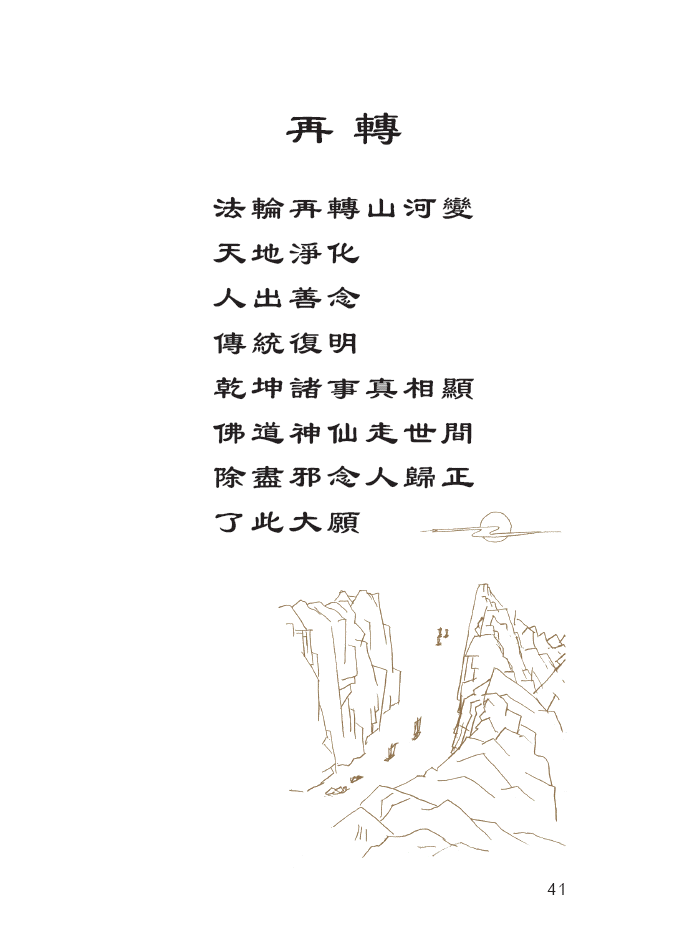 再轉
法輪再轉山河變
天地淨化
人出善念
傳統復明
乾坤諸事真相顯
佛道神仙走世間
除盡邪念人歸正
了此大願
41